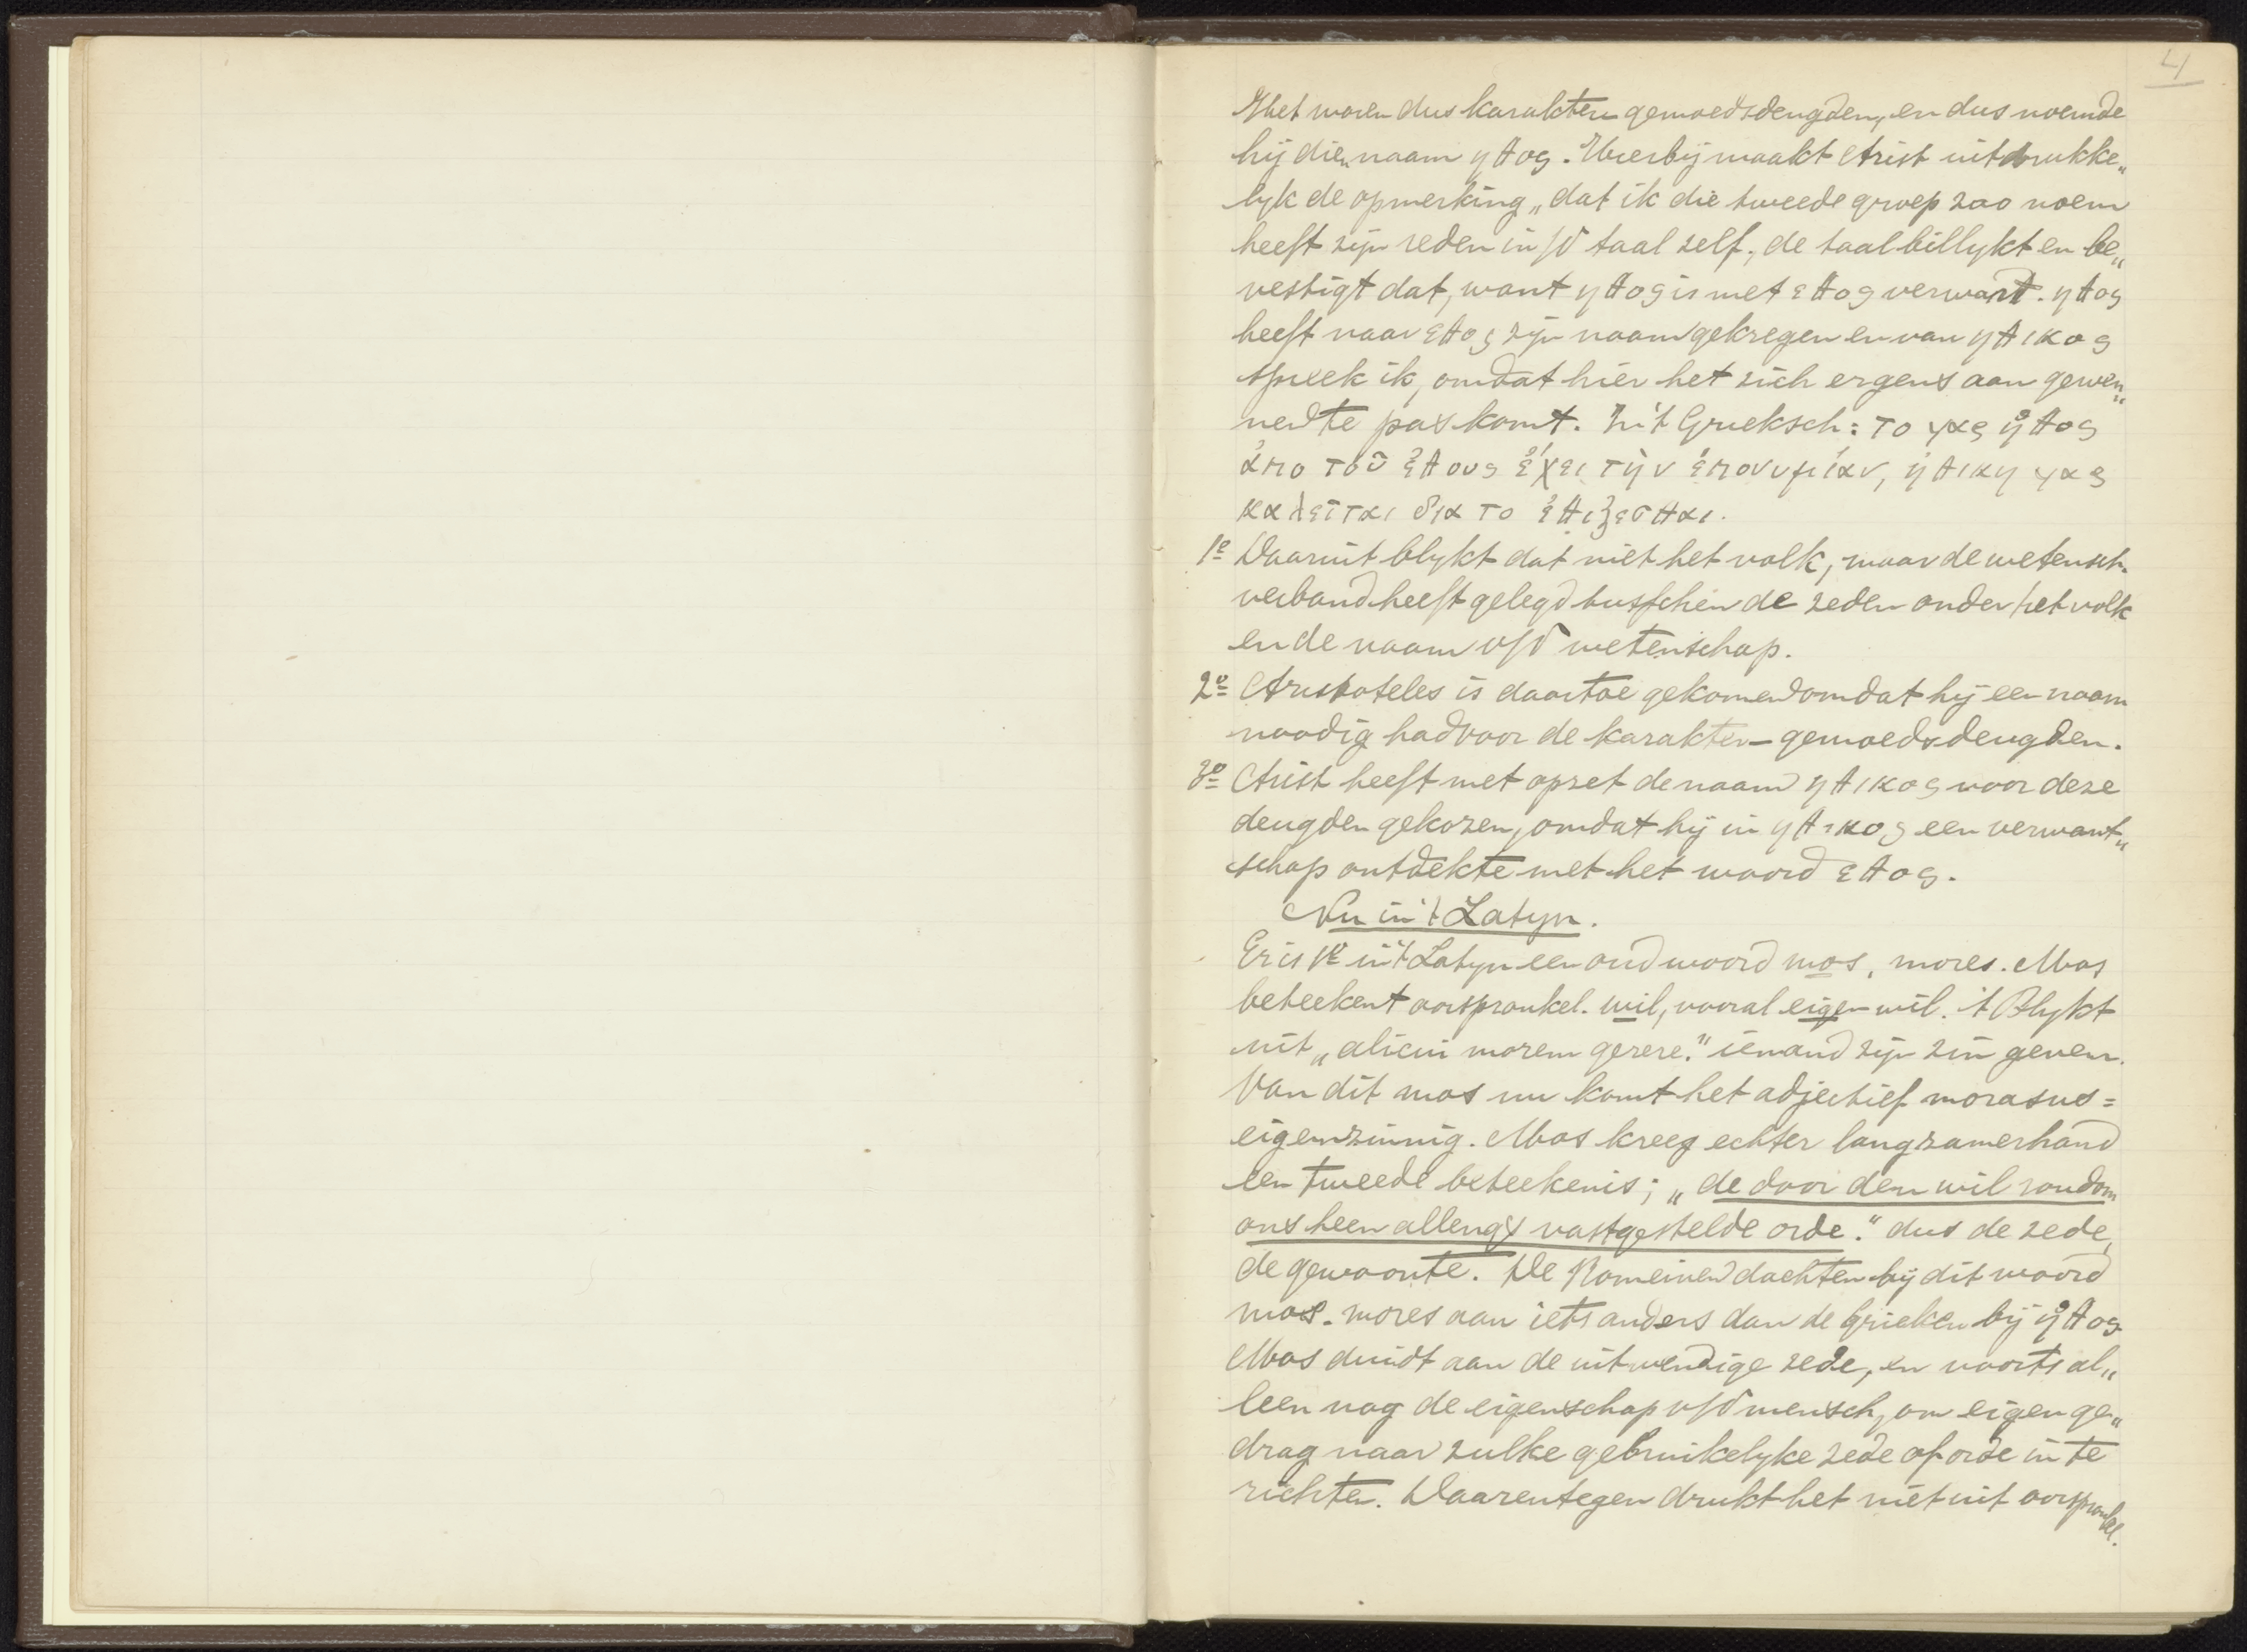 4
Het waren dus karakter gemoedsdeugden, en dus noemde
hij die naam ηθος. Hierbij maakt Arist uitdrukke„
lyk de opmerking „dat ik die tweede groep zoo noem
heeft zijn reden in/d taal zelf; de taal billykt en be„
vestigt dat, want ηθος is met εθος verwant. ηθος
heeft naar εθος zijn naam gekregen en van ηθικος
spreek ik, omdat hier het zich ergens aan gewen„
nen te pas komt. In 't Grieksch: το γαρ ἠθος
ἀπο τοῦ ἐθους ἔχει τὴν ἐπονυμίαν, ἠθικη γαρ
καλεῖται δια το ἐθιζεσθαι.
1e Daaruit blykt dat niet het volk, maar de wetensch.
verband heeft gelegd tusschen de zeden onder het volk
en de naam v/d wetenschap.
2e Aristoteles is daartoe gekomen omdat hij een naam
noodig had voor de karakter-gemoedsdeugden.
3e Arist heeft met opzet de naam ηθικος voor deze
deugden gekozen, omdat hij in ηθικος een verwant„
schap ontdekte met het woord εθος.
Nu in 't Latyn.
Er is 1e in 't Latyn een oud woord mos, mores. Mos
beteekent oorspronkel. wil, vooral eigen wil. 't Blykt
uit „alicui morem gerere." iemand zijn zin geven.
Van dit mos nu komt het adjectief morasus =
eigenzinnig. Mos kreeg echter langzamerhand
een tweede beteekenis; „de door den wil rondom
ons heen allengs vastgestelde orde." dus de zede,
de gewoonte. De Romeinen dachten bij dit woord
mos-mores aan iets anders dan de Grieken bij ἠθος
Mos duidt aan de uitwendige zede, en voorts al„
leen nog de eigenschap v/d mensch, om eigen ge„
drag naar zulke gebruikelyke zede of orde in te
richten. Daarentegen drukt het niet uit oorspronkel.